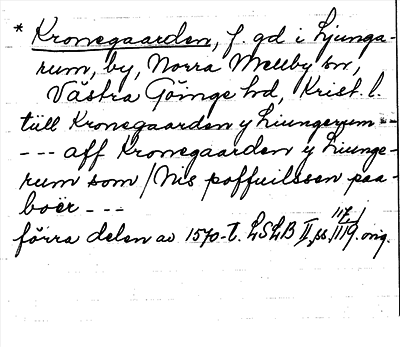 * Kronegaarden, f. gd i Ljunga-
rum, by, Norra Mellby sn,
Västra Göinge hd, Krist. l.
tiill Kronegaarden y Liungerum --
--- aff Kronegaarden y Liunge-
rum som / Nis poffuilssen paa-
boer ---
förra delen av 1570-t. LSLB II, ss. 117, 119. orig.